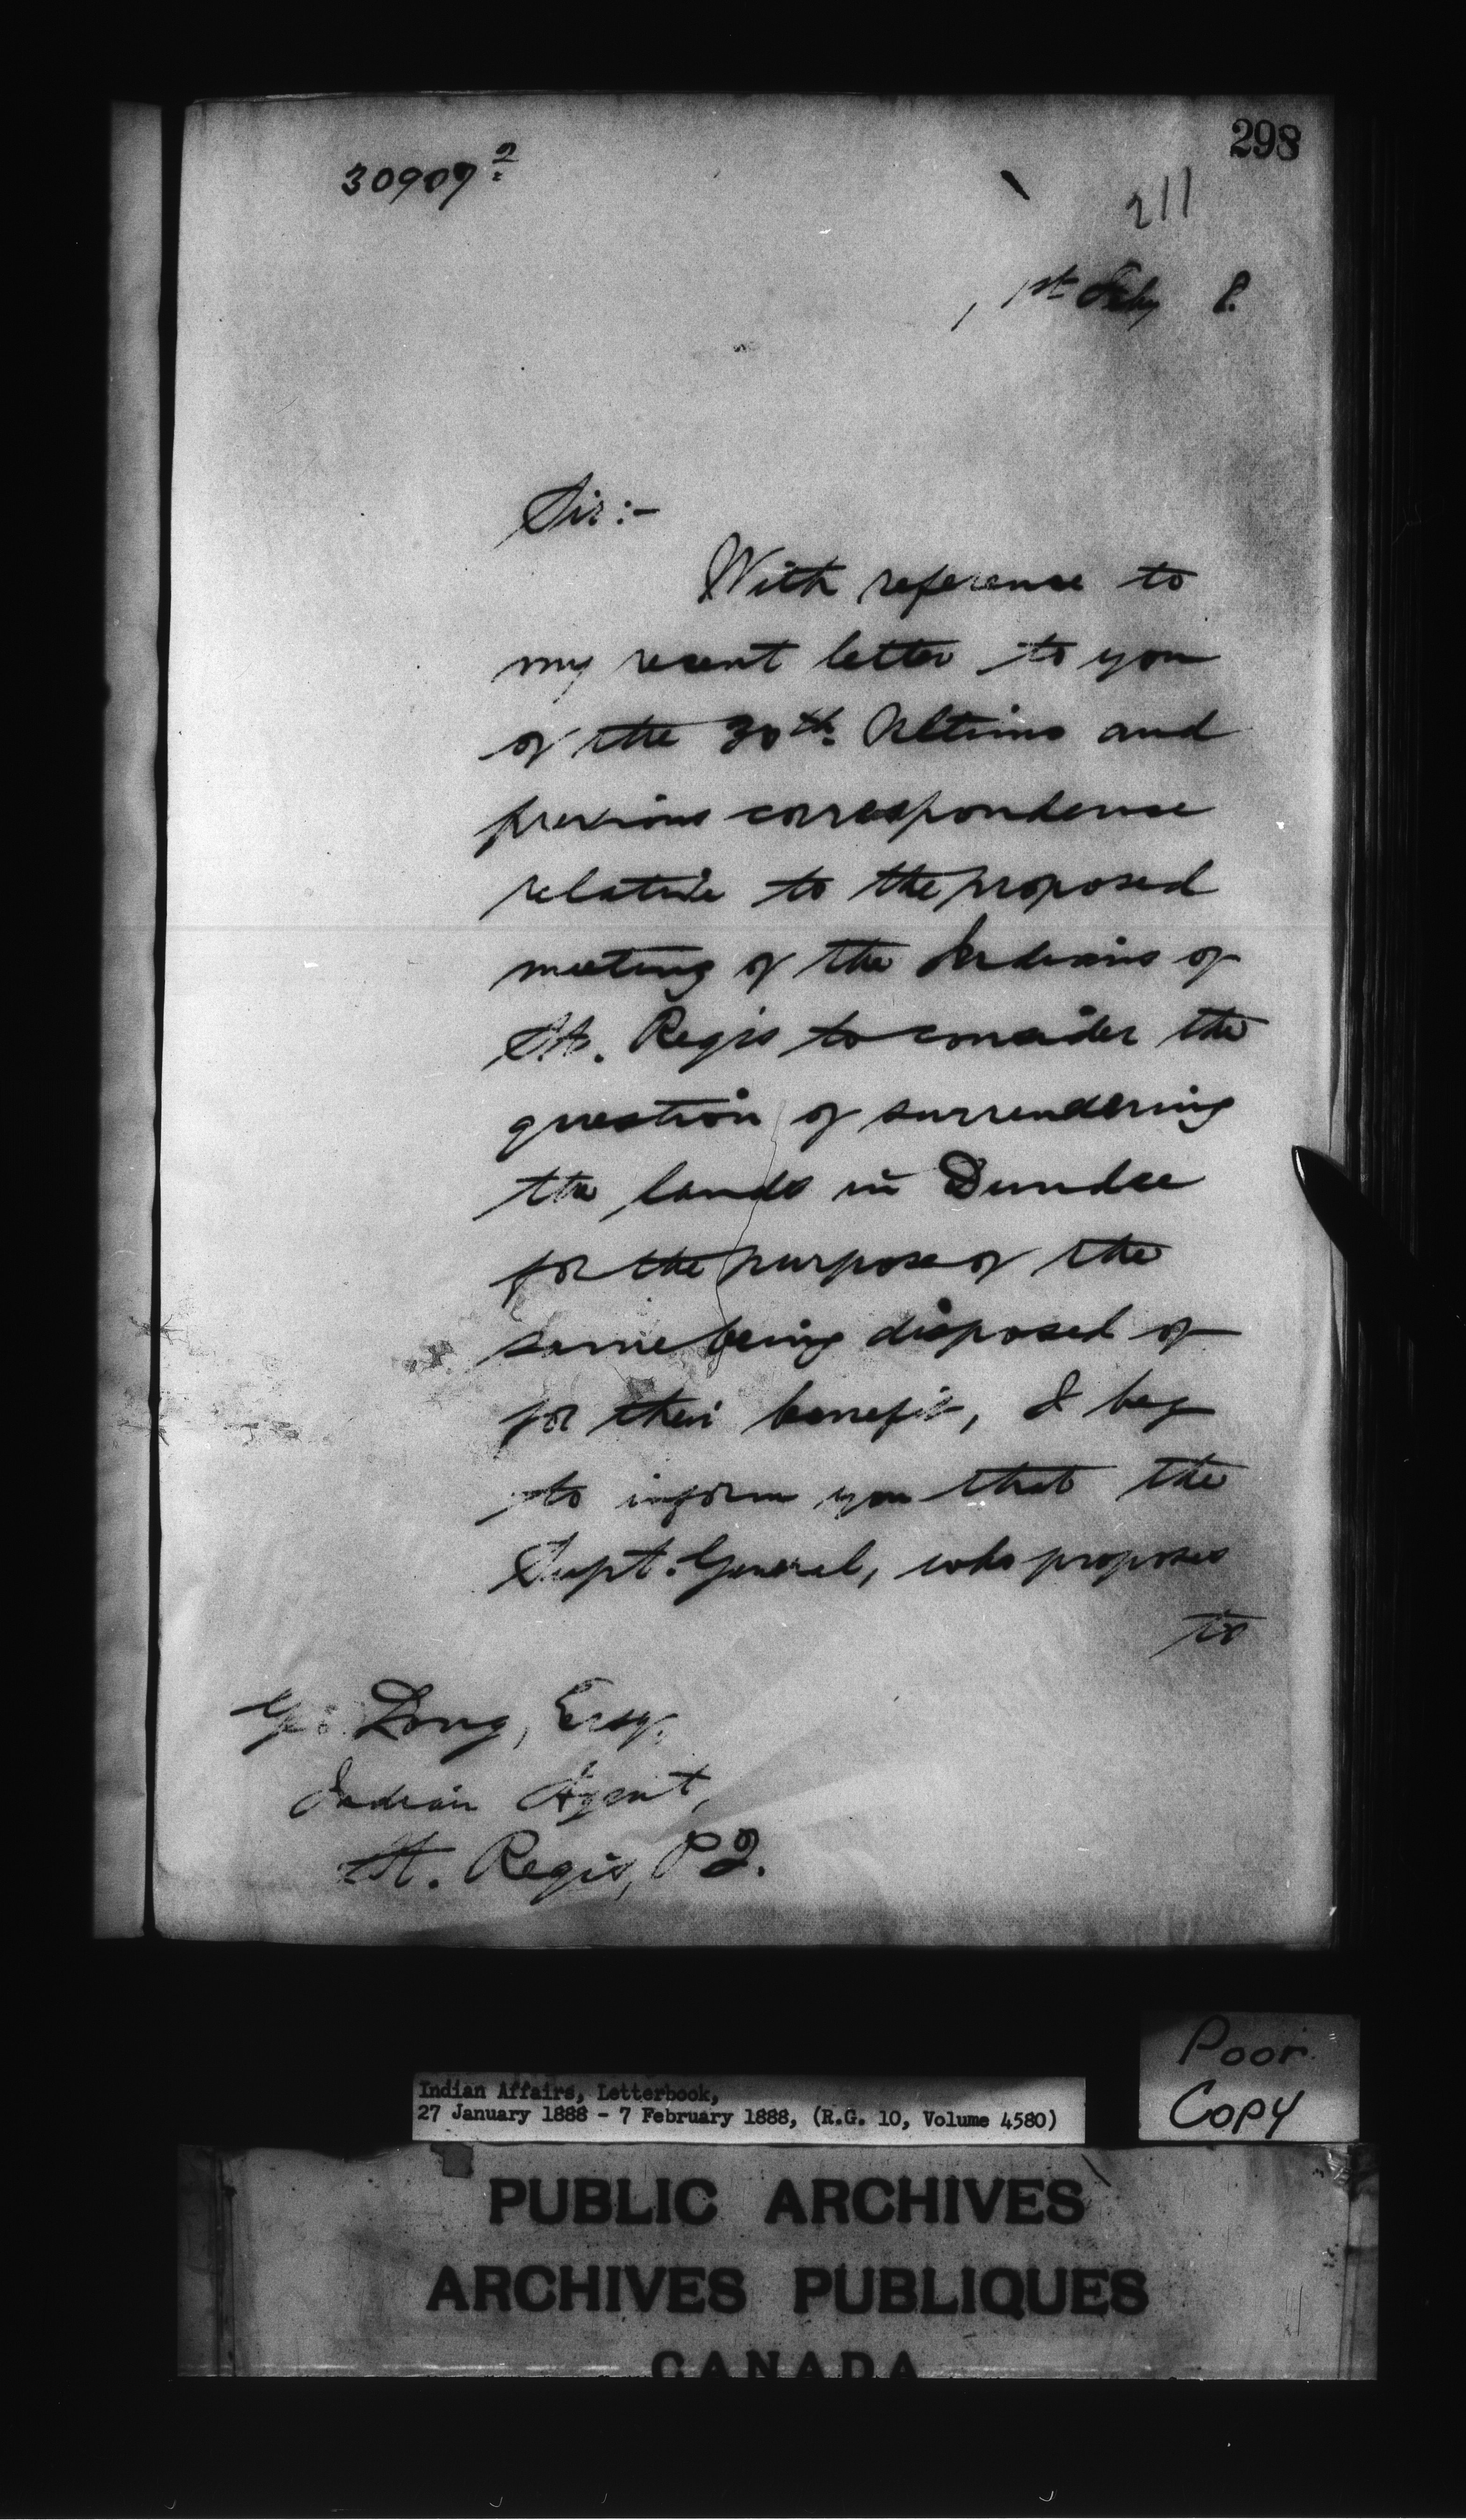 298
30907²
211
1st Feby 8.
Sir:-
With reference to
my recent letter to you
of the 30th. Ultimo and
previous correspondence
relative to the proposed
meeting of the Indians of
St. Regis to consider the
question of surrendering
the lands in Dundee
for the purpose of the
same being disposed of
for their benefit, I beg
to inform you that the
Supt. General, who proposes
to
Long, Esq.
Indian Agent,
St. Regis, P.Q.
Poor
Copy
Indian Affairs, Letterbook,
27 January 1888 - 7 February 1888, (R.G. 10, Volume 4580)
PUBLIC ARCHIVES
ARCHIVES PUBLIQUES
CANADA